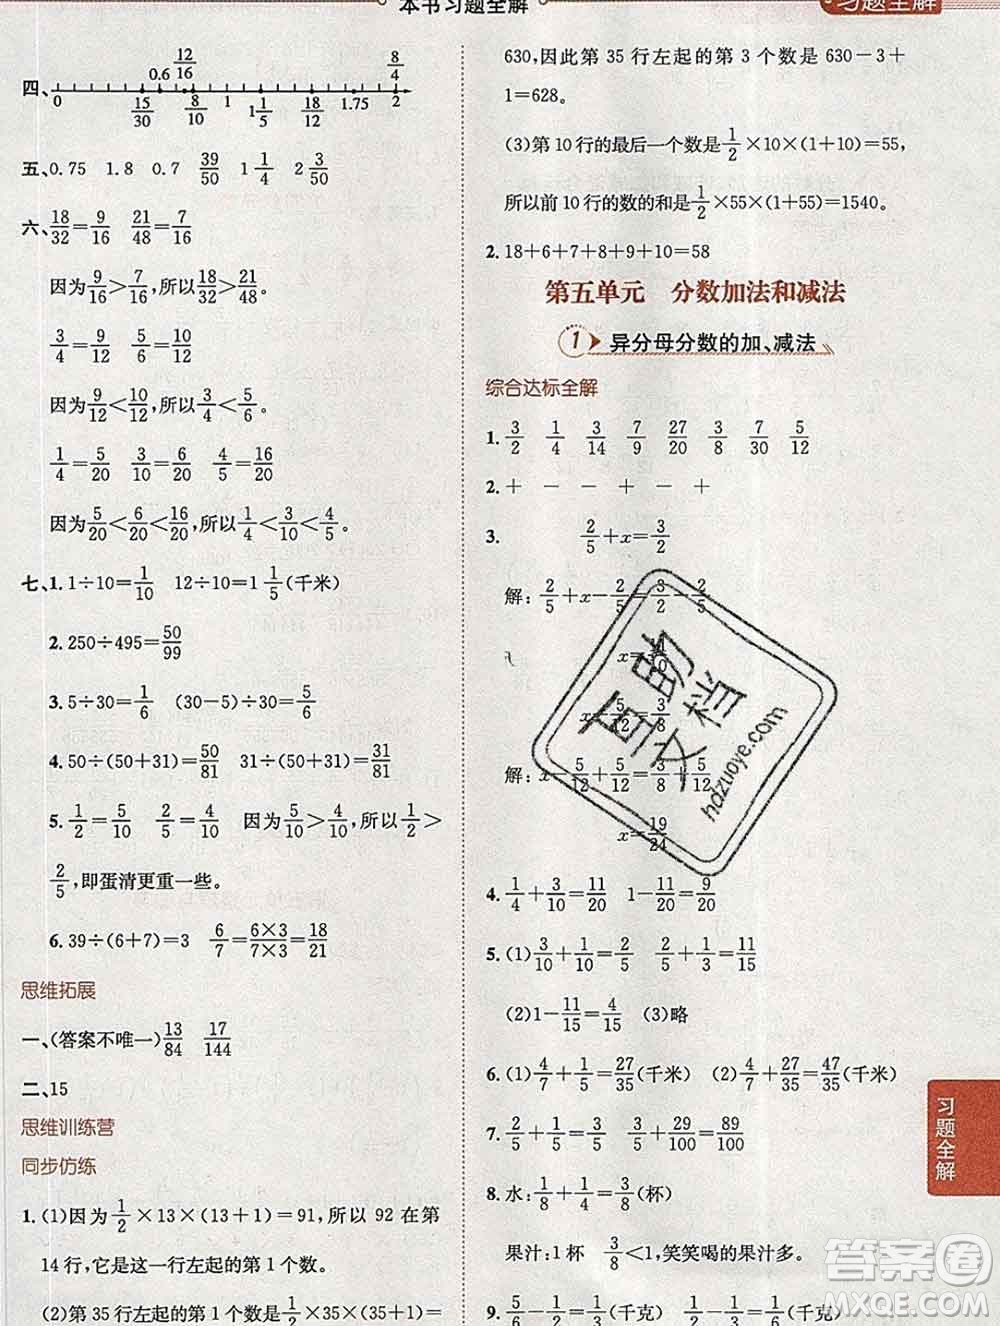 本书习题全解
习题全解
四、 0 15/30 0.6 12/16 8/10 1 1 1/5 18/12 1.75 8/4 2
五、0.75 1.8 0.7 39/50 1 1/4 2 3/50
六、18/32=9/16 21/48=7/16
因为9/16>7/16,所以18/32>21/48。
3/4=9/12 5/6=10/12
因为9/12<10/12,所以3/4<5/6。
1/4=5/20 3/10=6/20 4/5=16/20
因为5/20<6/20<16/20,所以1/4<3/10<4/5。
七、1. 1÷10=1/10 12÷10=1 1/5(千米)
2. 250÷495=50/99
3. 5÷30=1/6 (30-5)÷30=5/6
4. 50÷(50+31)=50/81 31÷(50+31)=31/81
5. 1/2=5/10 2/5=4/10 因为5/10>4/10,所以1/2>
2/5,即蛋清更重一些。
6. 39÷(6+7)=3 6/7=6×3/7×3=18/21
思维拓展
一、(答案不唯一)13/84 17/144
二、15
思维训练营
同步仿练
1. (1)因为1/2×13×(13+1)=91,所以92在第
14行,也就是这一行左起的第1个数。
(2)第35行左起的第1个数是1/2×35×(35+1)=
630,因此第35行左起的第3个数是630-3+
1=628。
(3)第10行的最后一个数是1/2×10×(1+10)=55,
所以前10行的数的和是1/2×55×(1+55)=1540。
2. 18+6+7+8+9+10=58
第五单元 分数加法和减法
1 异分母分数的加、减法
综合达标全解
1. 3/2 1/4 3/14 7/9 27/20 3/8 7/30 5/12
2. + - - + - +
3. 2/5+x=3/2
解:2/5+x-2/5=3/2-2/5
x=11/10
x-5/12=3/8
解:x-5/12+5/12=3/8+5/12
x=19/24
4. 1/4+3/10=11/20 1-11/20=9/20
5. (1)3/10+1/10=2/5 2/5+1/3=11/15
(2)1-11/15=4/15 (3)略
6. (1)4/7+1/5=27/35(千米) (2)4/7+27/35=47/35(千米)
7. 2/5+1/5=3/5 3/5+29/100=89/100
8. 水:1/8+1/4=3/8(杯)
果汁:1杯 3/8<1,笑笑喝的果汁多。
9. 5/6-1/2=1/3(千克) 1/2-1/3=1/6(千克)
习题全解
百助文档
hdzuoye.com
答案圈
MXQE.COM